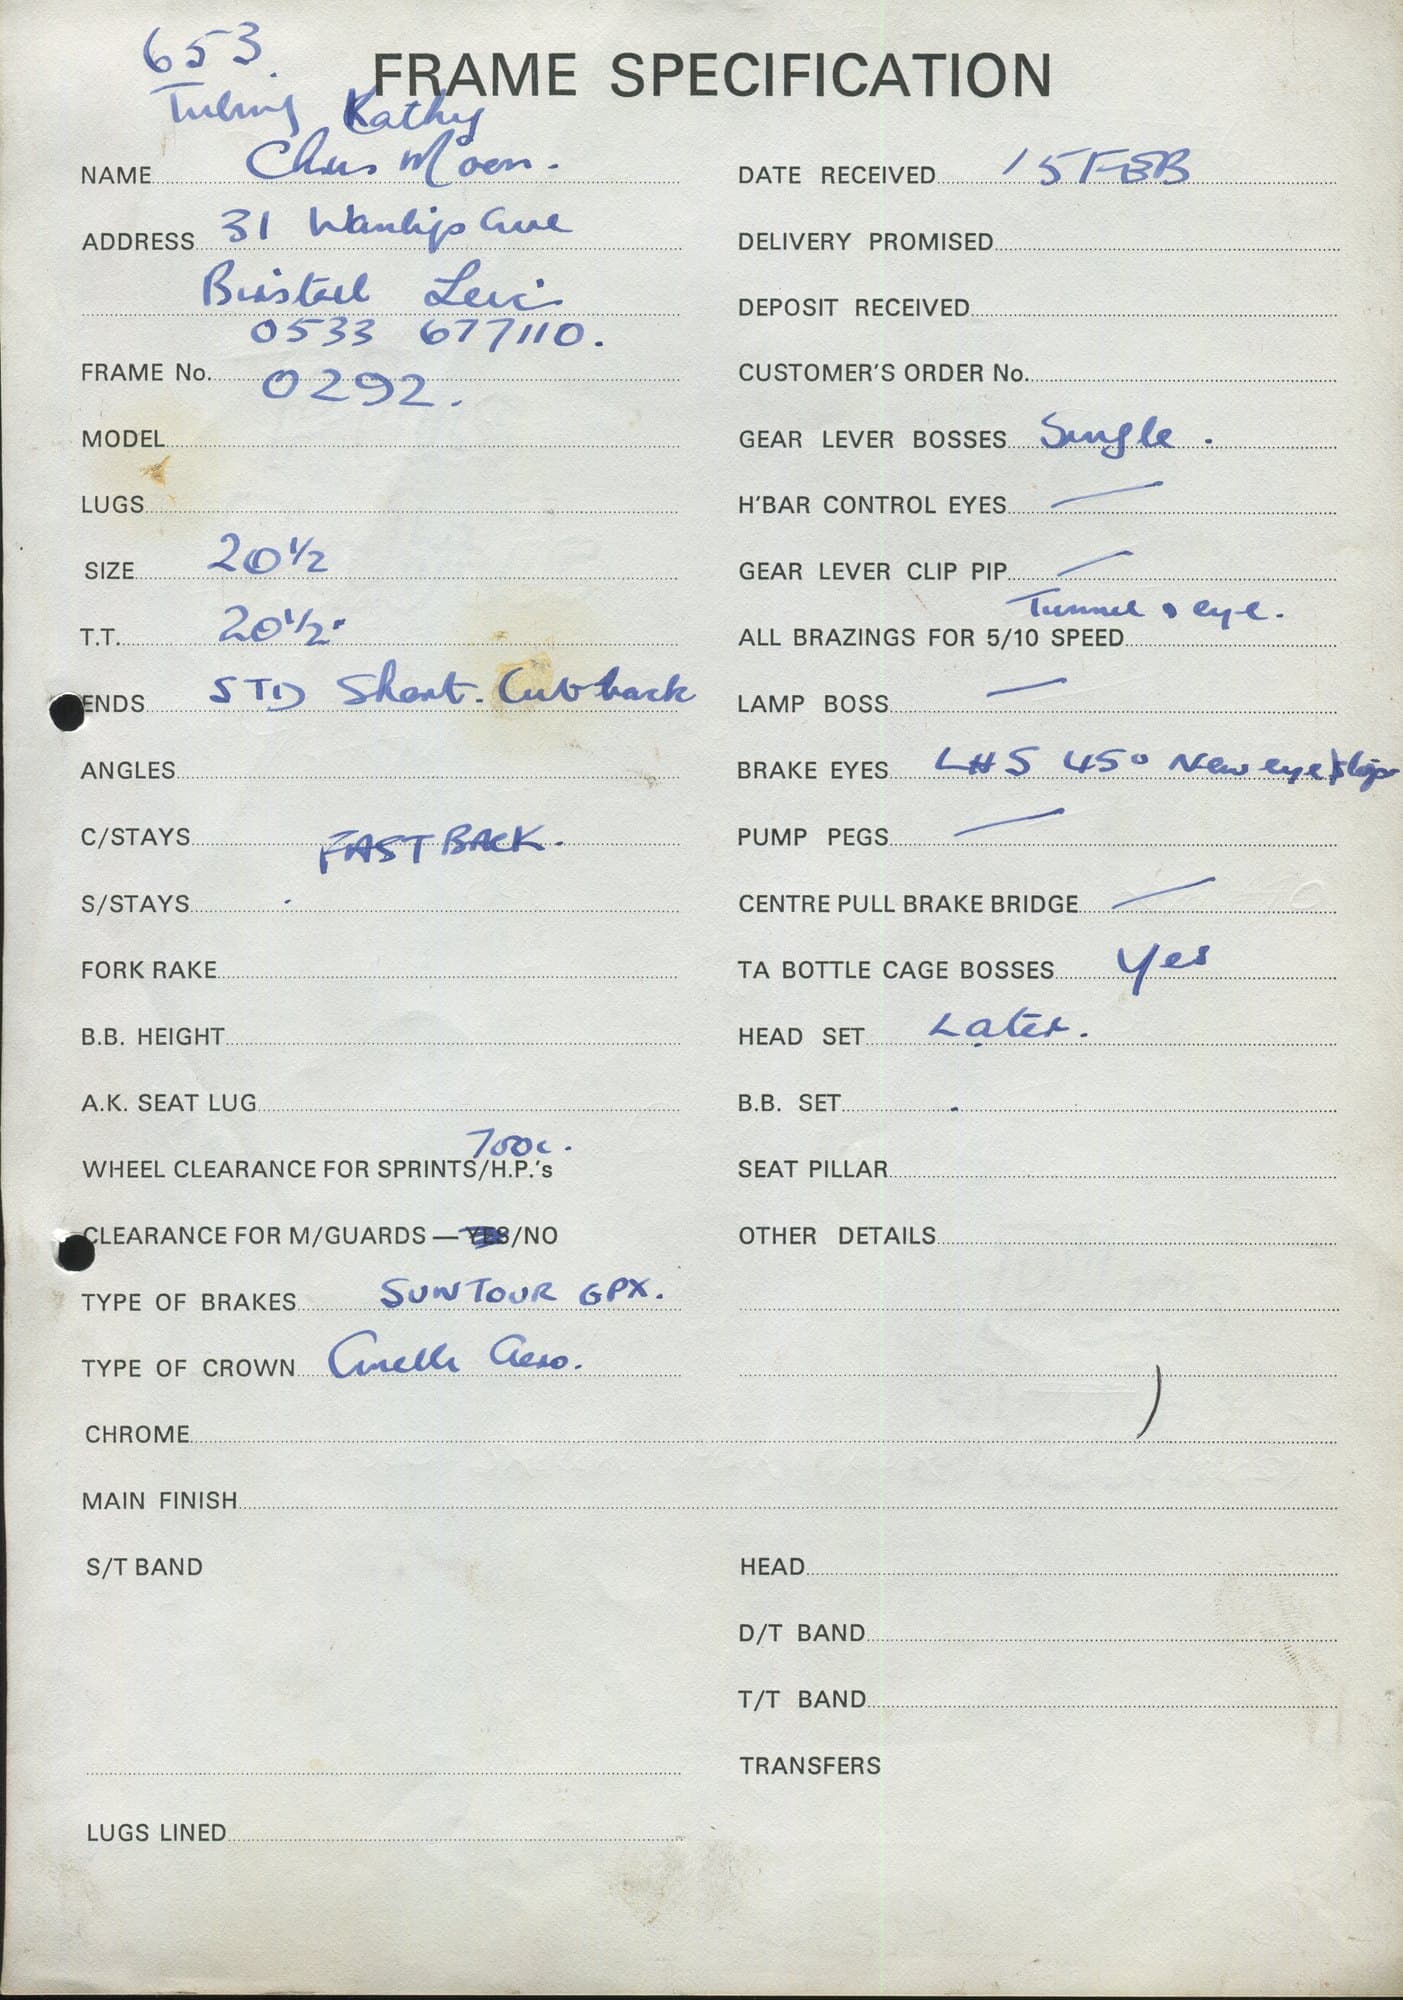 653.
FRAME SPECIFICATION
Tubing Kathy
NAME Chris Moon.
ADDRESS 31 Wanlip Ave
Birstall Leic
0533 677110.
FRAME No. 0292.
MODEL
LUGS
SIZE 20 1/2
T.T. 20 1/2"
ENDS STD Short. Cut back
ANGLES
C/STAYS
FAST BACK.
S/STAYS
FORK RAKE
B.B. HEIGHT
A.K. SEAT LUG
700c.
WHEEL CLEARANCE FOR SPRINTS/H.P.'s
CLEARANCE FOR M/GUARDS — YES/NO
TYPE OF BRAKES SUNTOUR GPX.
TYPE OF CROWN Cinelli Aero.
CHROME
MAIN FINISH
S/T BAND
LUGS LINED
DATE RECEIVED 15 FEB
DELIVERY PROMISED
DEPOSIT RECEIVED
CUSTOMER'S ORDER No.
GEAR LEVER BOSSES Single.
H'BAR CONTROL EYES —
GEAR LEVER CLIP PIP —
Tunnel & eye.
ALL BRAZINGS FOR 5/10 SPEED
LAMP BOSS —
BRAKE EYES LHS 45° New eye
PUMP PEGS —
CENTRE PULL BRAKE BRIDGE —
TA BOTTLE CAGE BOSSES Yes
HEAD SET Later.
B.B. SET
SEAT PILLAR
OTHER DETAILS
HEAD
D/T BAND
T/T BAND
TRANSFERS